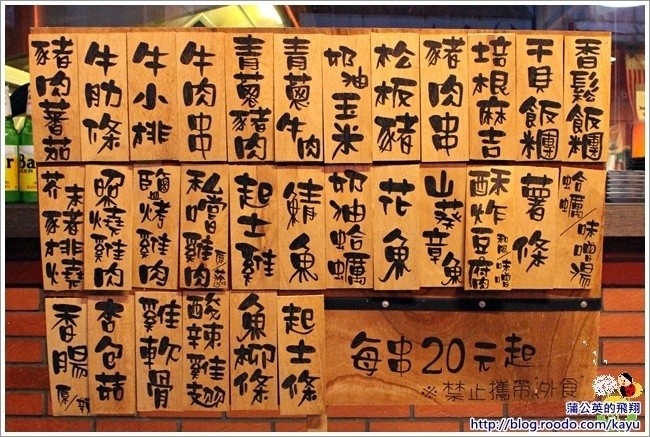 豬肉蕃茄
牛肋條
牛小排
牛肉串
青蔥豬肉
青蔥牛肉
奶油玉米
松板豬
豬肉串
培根麻吉
干貝飯糰
香鬆飯糰
芥末豬排燒
照燒雞肉
鹽烤雞肉
私嚐雞肉
起士雞
鯖魚
奶油蛤蠣
花魚
山葵章魚
酥炸豆腐
/味噌
薯條
蛤蠣/味噌湯
香腸
原/辣
杏包菇
雞軟骨
酸辣雞翅
魚柳條
起士條
每串20元起
※禁止攜帶外食
蒲公英的飛翔
http://blog.roodo.com/kayu